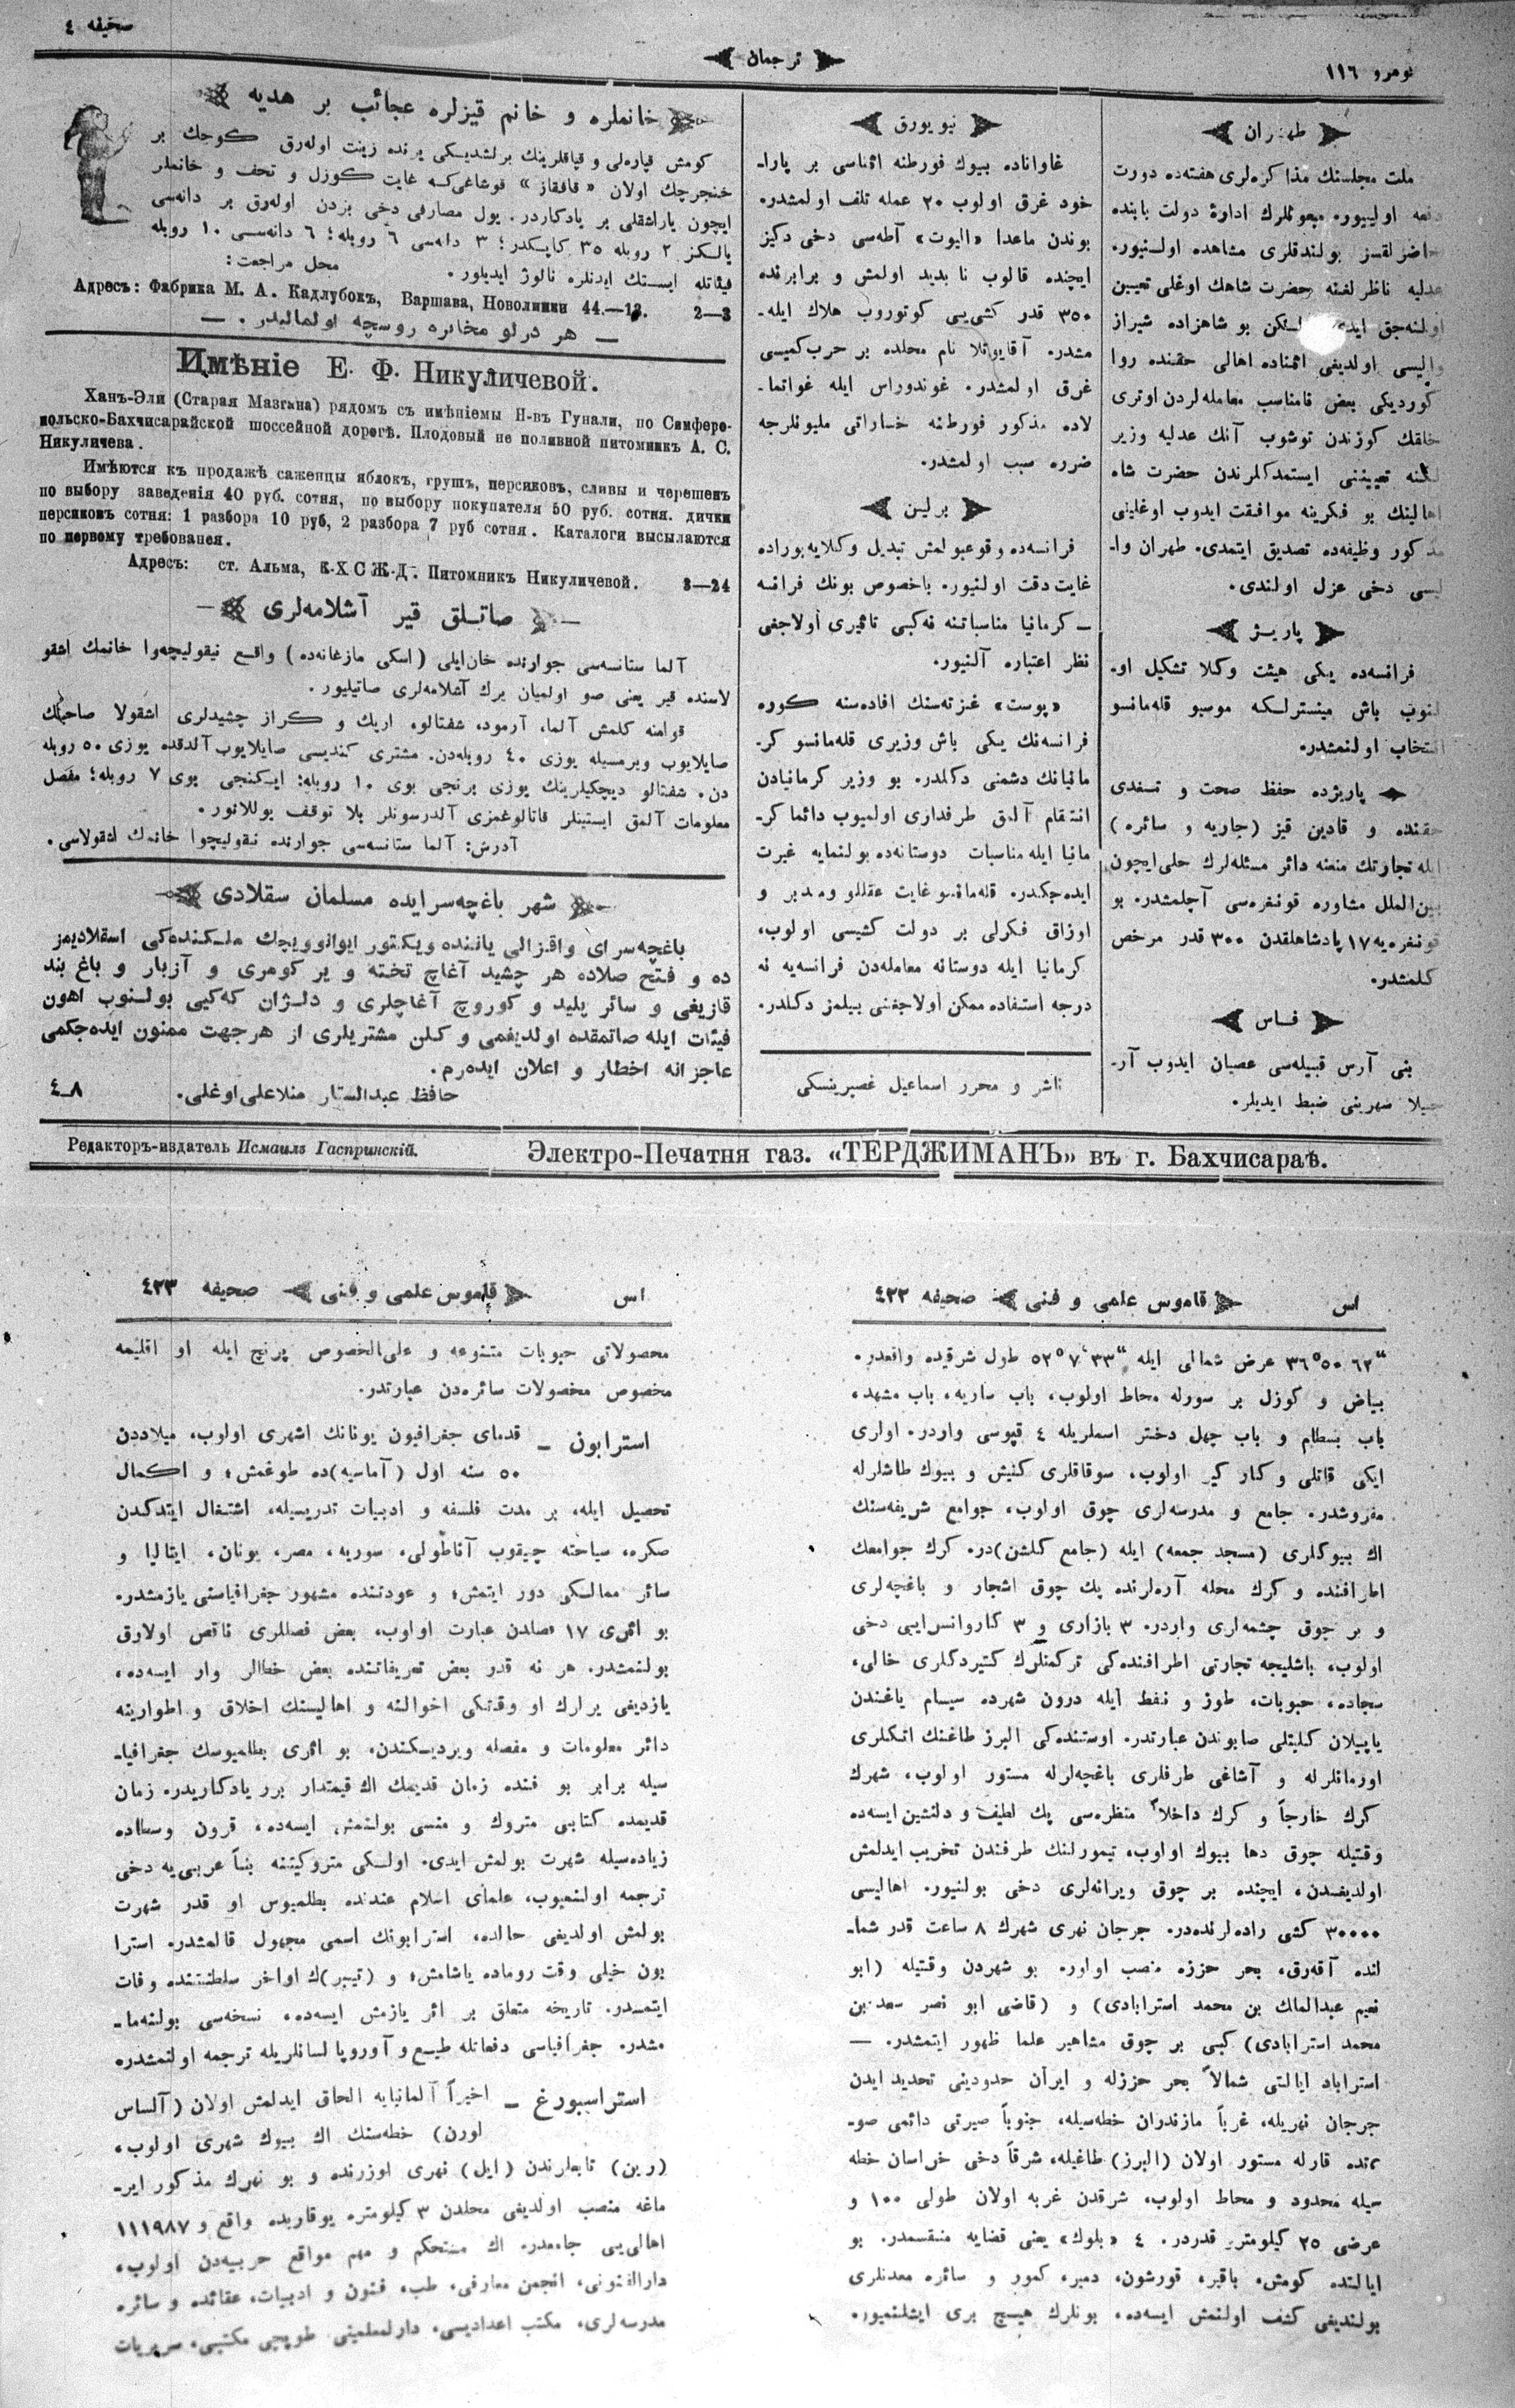 نومرو ١١٦
ترجمان
صحیفه ٤
طهران
ملت مجلسنك مذاكره‌لری هفته‌ده دورت
دفعه اولییور. مبعوثلرك اداره‌ٔ دولت بابنده
حاضرلقسز بولندقلری مشاهده اولنیور.
عدلیه ناظرلغنه حضرت شاهك اوغلی تعیین
اولنه‌جق ایدی بو شاهزاده شیراز
والیسی اولدیغی اثناده اهالی حقنده روا
كوردیكی بعض نامناسب معامله‌لردن اوتری
خلقك كوزندن توشوب آنك عدلیه وزیر
لكنه تعییننی ایستمدكلرندن حضرت شاه
اهالینك بو فكرینه موافقت ایدوب اوغلینی
مذكور وظیفه‌ده تصدیق ایتمدی. طهران وا-
لیسی دخی عزل اولندی.
پاریژ
فرانسه‌ده یكی هیئت وكلا تشكیل او-
لنوب باش مینسترلكه موسیو قله‌مانسو
انتخاب اولنمشدر.
پاریژده حفظ صحت و تسفدی
حقنده و قادین قیز (جاریه و سائره)
ایله تجارتك منعنه دائر مسئله‌لرك حلی ایچون
بین‌الملل مشاوره قونفره‌سی آچلمشدر. بو
قونفره‌یه ١٧ پادشاهلقدن ٣٠٠ قدر مرخص
كلمشدر.
فاس
بنی آرس قبیله‌سی عصیان ایدوب آر-
جیلا شهرینی ضبط ایدیلر.
نیویورق
غاواناده بیوك فورطنه اثناسی بر پارا-
خود غرق اولوب ٢٠ عمله تلف اولمشدر.
بوندن ماعدا «الیوت» آطه‌سی دخی دكیز
ایچنده قالوب نابدید اولمش و برابرنده
٣٥٠ قدر كشی‌یی كوتوروب هلاك ایله-
مشدر. نام محلده بر حرب كمیسی
غرق اولمشدر. غوندوراس ایله غواتما-
لاده مذكور فورطنه خساراتی ملیونلرجه
ضرره سبب اولمشدر.
برلین
فرانسه‌ده وقوعبولمش تبدیل وكلایه بوراده
غایت دقت اولنیور. باخصوص بونك فرانسه
— كرمانیا مناسباتنه نه‌كبی تاثیری اولاجغی
نظر اعتباره آلنیور.
«پوست» غزته‌سنك افاده‌سنه كوره
فرانسه‌نك یكی باش وزیری قله‌مانسو كر-
مانیانك دشمنی دكلدر. بو وزیر كرمانیادن
انتقام آلمق طرفداری اولمیوب دائما كر-
مانیا ایله مناسبات دوستانه‌ده بولنمایه غیرت
ایده‌جكدر. قله‌مانسو غایت عقللو ومدبر و
اوزاق فكرلی بر دولت كشیسی اولوب،
كرمانیا ایله دوستانه معامله‌دن فرانسه‌یه نه
درجه استفاده ممكن اولاجغنی بیلمز دكلدر.
ناشر و محرر اسماعیل غصپرینسكی
خانملره و خانم قیزلره عجائب بر هدیه
كومش قپاره‌لی و قپاقلرینك برلشدیكی یرنده زینت اوله‌رق كوچك بر
خنجرچك اولان «قافقاز» قوشاغی كه غایت كوزل و تحف و خانملر
ایچون یاراشقلی بر یادكاردر. یول مصارفی دخی بزدن اوله‌رق بر دانه‌سی
یالكز ٢ روبله ٣٥ كاپیكدر؛ ٣ دانه‌سی ٦ روبله؛ ٦ دانه‌سی ١٠ روبله
فیئاتله ایستك ایدنلره نالوژ ایدیلور. محل مراجعت:
Адресъ: Фабрика М. А. Кадлубокъ, Варшава, Новолипки 44.—12. 2—3
— هر درلو مخابره روسچه اولمالیدر. —
Имѣніе Е. Ф. Никуличевой.
Ханъ-Эли (Старая Мазгана) рядомъ съ имѣніемы Н-въ Гунали, по Симферо-
польско-Бахчисарайской шоссейной дорогѣ. Плодовый не поливной питомникъ А. С.
Никуличева.
Имѣются къ продажѣ саженцы яблокъ, грушъ, персиковъ, сливы и черешенъ
по выбору заведенія 40 руб. сотня, по выбору покупателя 50 руб. сотня. дички
персиковъ сотня: 1 разбора 10 руб, 2 разбора 7 руб сотня. Каталоги высылаются
по первому требованея.
Адресъ: ст. Альма, К-Х С Ж-Д. Питомникъ Никуличевой. 3—24
صاتلق قیر آشلامه‌لری
آلما ستانسه‌سی جوارنده خان‌ایلی (اسكی مازغانه‌ده) واقع نیقولیچه‌وا خانمك اشقو
لاسنده قیر یعنی صو اولمیان یرك آشلامه‌لری صاتیلیور.
قوامنه كلمش آلما، آرمود، شفتالو، اریك و كراز چشیدلری اشقولا صاحبنك
صایلایوب ویرمسیله یوزی ٤٠ روبله‌دن. مشتری كندیسی صایلایوب آلدقده یوزی ٥٠ روبله
دن. شفتالو دیچكیلرینك یوزی برنجی بوی ١٠ روبله؛ ایكنجی بوی ٧ روبله؛ مفصل
معلومات آلمق ایستینلر قاتالوغمزی آلدرسونلر بلا توقف یوللانور.
آدرش: آلما ستانسه‌سی جوارنده نیقولیچوا خانمك اشقولاسی.
شهر باغچه‌سرایده مسلمان سقلادی
باغچه‌سرای واقزالی یاننده ویكتور ایوانوویچك ملكنده‌كی اسقلادیمز
ده و فتح صلاده هر چشید آغاچ تخته و یر كومری و آزبار و باغ بند
قازیغی و سائر پلید و كوروچ آغاچلری و دلژان كه‌كیی بولنوب اهون
فیئات ایله صاتمقده اولدیغمی و كلن مشتریلری از هرجهت ممنون ایده‌جكمی
عاجزانه اخطار و اعلان ایده‌رم.
حافظ عبدالستار منلاعلی اوغلی. ٨—٤
Редакторъ-издатель Исмаилъ Гаспринскій. Электро-Печатня газ. «ТЕРДЖИМАНЪ» въ г. Бахчисараѣ.
اس قاموس علمی و فنی صحیفه ٤٢٢
عرض شمالی ایله طول شرقیده واقعدر.
بیاض و كوزل بر سورله محاط اولوب، باب ساریه، باب مشهد،
باب بسطام و باب چهل دختر اسملریله ٤ قپوسی واردر. اولری
ایكی قاتلی و كناركیر اولوب، سوقاقلری كنیش و بیوك طاشلرله
مفروشدر. جامع و مدرسه‌لری چوق اولوب، جوامع شریفه‌سنك
اك بیوكلری (مسجد جمعه) ایله (جامع كلشن)در. كرك جوامعك
اطرافنده و كرك محله آره‌لرنده پك چوق اشجار و باغچه‌لری
و بر چوق چشمه‌لری واردر. ٣ بازاری و ٣ كاروانسرایی دخی
اولوب، باشلیجه تجارتی اطرافنده‌كی تركمنلرك كتیردكلری خالی،
سجاده، حبوبات، طوز و نفط ایله درون شهرده سیسام یاغندن
یاپیلان كلیتلی صابوندن عبارتدر. اوستنده‌كی البرز طاغنك اتكلری
اورمانلرله و آشاغی طرفلری باغچه‌لرله مستور اولوب، شهرك
كرك خارجاً و كرك داخلاً منظره‌سی پك لطیف و دلنشین ایسه‌ده
وقتیله چوق دها بیوك اولوب، تیمورلنك طرفندن تخریب ایدلمش
اولدیغندن، ایچنده بر چوق ویرانه‌لری دخی بولنیور. اهالیسی
٣٠٠٠٠ كشی راده‌لرنده‌در. جرجان نهری شهرك ٨ ساعت قدر شما-
لنده آقه‌رق، بحر حزره منصب اولور. بو شهردن وقتیله (ابو
نعیم عبدالملك بن محمد استرابادی) و (قاضی ابو نصر سعد بن
محمد استرابادی) كبی بر چوق مشاهیر علما ظهور ایتمشدر. —
استراباد ایالتی شمالاً بحر حزرله و ایران حدودینی تحدید ایدن
جرجان نهریله، غرباً مازندران خطه‌سیله، جنوباً صیرتی دائمی صو-
رتده قارله مستور اولان (البرز) طاغیله، شرقاً دخی خراسان خطه
سیله محدود و محاط اولوب، شرقدن غربه اولان طولی ١٠٠ و
عرضی ٢٥ كیلومتره قدردر. ٤ «بلوك» یعنی قضایه منقسمدر. بو
ایالتده كومش، باقیر، قورشون، دمیر، كمور و سائره معدنلری
بولندیغی كشف اولنمش ایسه‌ده، بونلرك هیچ بری ایشلنمیور.
اس قاموس علمی و فنی صحیفه ٤٢٣
محصولاتی حبوبات متنوعه و علی‌الخصوص پرنج ایله او اقلیمه
مخصوص محصولات سائره‌دن عبارتدر.
استرابون — قدمای جغرافیون یونانك اشهری اولوب، میلاددن
٥٠ سنه اول (آماسیه)ده طوغمش؛ و اكمال
تحصیل ایله، بر مدت فلسفه و ادبیات تدریسیله، اشتغال ایتدكدن
صكره، سیاحته چیقوب آناطولی، سوریه، مصر، یونان، ایتالیا و
سائر ممالكی دور ایتمش؛ و عودتنده مشهور جغرافیاسنی یازمشدر.
بو اثری ١٧ فصلدن عبارت اولوب، بعض فصللری ناقص اولارق
بولنمشدر. هر نه قدر بعض تعریفاتنده بعض خطالر وار ایسه‌ده،
یازدیغی یرلرك او وقتكی احوالنه و اهالیسنك اخلاق و اطوارینه
دائر معلومات و مفصله ویردیكندن، بو اثری بطلمیوسك جغرافیا-
سیله برابر بو فنده زمان قدیمك اك قیمتدار برر یادكاریدر. زمان
قدیمده كتابی متروك و منسی بولنمش ایسه‌ده، قرون وسطاده
زیاده‌سیله شهرت بولمش ایدی. اولكی متروكیتنه بنأ عربی‌یه دخی
ترجمه اولنمیوب، علمای اسلام عندنده بطلمیوس او قدر شهرت
بولمش اولدیغی حالده، استرابونك اسمی مجهول قالمشدر. استرا
بون خیلی وقت روماده یاشامش؛ و (تیبر)ك اواخر سلطنتنده وفات
ایتمشدر. تاریخه متعلق بر اثر یازمش ایسه‌ده، نسخه‌سی بولنه‌ما-
مشدر. جغرافیاسی دفعاتله طبع و آوروپا لسانلریله ترجمه اولنمشدر.
استراسبورغ — اخیراً آلمانیایه الحاق ایدلمش اولان (آلساس
لورن) خطه‌سنك اك بیوك شهری اولوب،
(رین) تابعلرندن (ایل) نهری اوزرنده و بو نهرك مذكور ایر-
ماغه منصب اولدیغی محلدن ٣ كیلومتره یوقاریده واقع و ١١١٩٨٧
اهالی‌یی جامعدر. اك مستحكم و مهم مواقع حربیه‌دن اولوب،
دارالفنونی، انجمن معارفی، طب، فنون و ادبیات، عقائده و سائره
مدرسه‌لری، مكتب اعدادیسی، دارلمعلمینی طوپچی مكتبی، سریریات